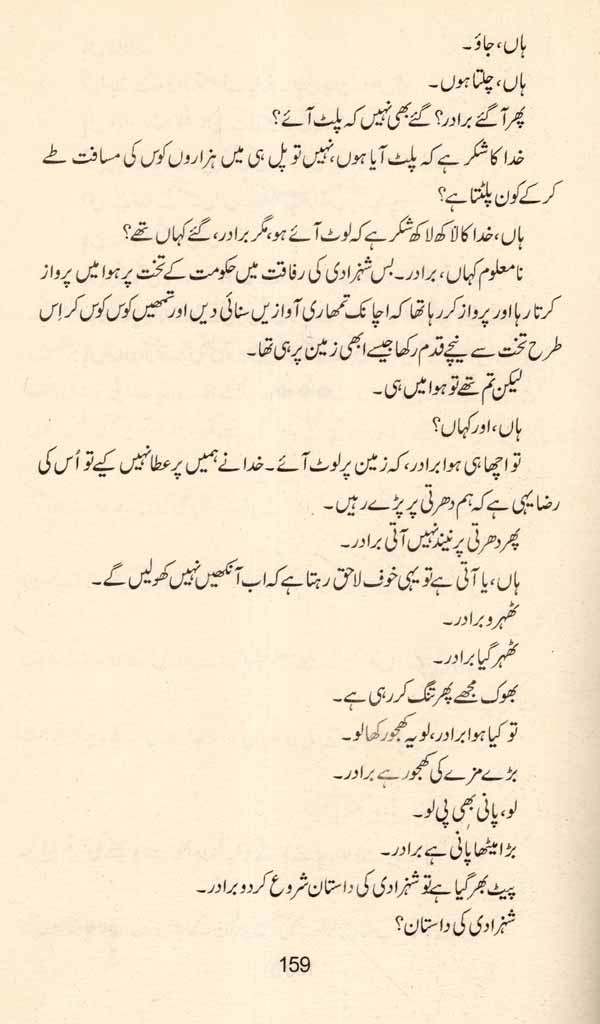 ہاں، جاؤ۔
ہاں، چلتا ہوں۔
پھر آ گئے برادر؟ گئے بھی نہیں کہ پلٹ آئے؟
خدا کا شکر ہے کہ پلٹ آیا ہوں، نہیں تو پل ہی میں ہزاروں کوس کی مسافت طے
کر کے کون پلٹتا ہے؟
ہاں، خدا کا لاکھ لاکھ شکر ہے کہ لوٹ آئے ہو، مگر برادر، گئے کہاں تھے؟
نا معلوم کہاں، برادر۔ بس شہزادی کی رفاقت میں حکومت کے تخت پر ہوا میں پرواز
کرتا رہا اور پرواز کر رہا تھا کہ اچانک تمھاری آوازیں سنائی دیں اور تمھیں کوس کوس کر اِس
طرح تخت سے نیچے قدم رکھا جیسے ابھی زمین پر ہی تھا۔
لیکن تم تھے تو ہوا میں ہی۔
ہاں، اور کہاں؟
تو اچھا ہی ہوا برادر، کہ زمین پر لوٹ آئے۔ خدا نے ہمیں پر عطا نہیں کیے تو اُس کی
رضا یہی ہے کہ ہم دھرتی پر پڑے رہیں۔
پھر دھرتی پر نیند نہیں آتی برادر۔
ہاں، یا آتی ہے تو یہی خوف لاحق رہتا ہے کہ اب آنکھیں نہیں کھولیں گے۔
ٹھہرو برادر۔
ٹھہر گیا برادر۔
بھوک مجھے پھر تنگ کر رہی ہے۔
تو کیا ہوا برادر، لو یہ کھجور کھا لو۔
بڑے مزے کی کھجور ہے برادر۔
لو، پانی بھی پی لو۔
بڑا میٹھا پانی ہے برادر۔
پیٹ بھر گیا ہے تو شہزادی کی داستان شروع کر دو برادر۔
شہزادی کی داستان؟
159